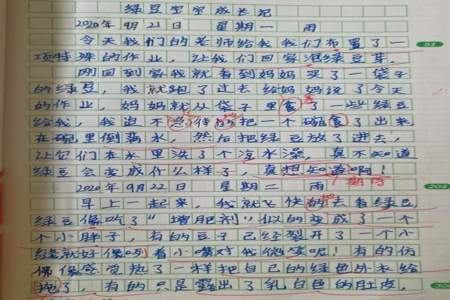 绿豆宝宝成长记
2020年9月21日 星期一 雨
今天我们的老师给我我们布置了一
项特殊的作业,让我们回家泡绿豆芽。
刚回到家我就看到妈妈买了一袋子
的绿豆,我就跑了过去给妈妈说了今天
的作业,妈妈就从袋子里 了一些绿豆
给我,我迫不 把一个碗 了出来
在碗里倒满水,然后把绿豆放了进去,
让它们在水里洗了个冷水澡,真不知道
绿豆会变成什么样了,真想知道啊!
2020年9月22日 星期二 雨
早上一起来,我就飞快的去看绿豆
绿豆像吃了"增肥剂"似的变成了一个
个小胖子,有的豆子已经裂开了一个小
缝就好像咧着小嘴对我微笑呢!有的仿
佛像感觉热了一样把自己的绿色外衣给
拖了,有的只是露出了乳白色的肚皮,